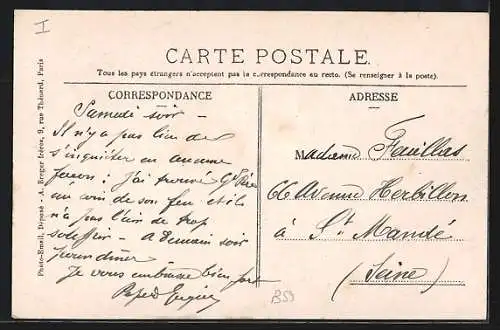 I
CARTE POSTALE.
Tous les pays étrangers n'acceptent pas la correspondance au recto. (Se renseigner à la poste).
CORRESPONDANCE
Samedi soir -
Il n'y a pas lieu de
s'inquiéter en aucune
façon ; j'ai trouvé Gd Père
au coin de son feu et il
n'a pas l'air de trop
souffrir - A demain soir
pour dîner -
Je vous embrasse bien fort
ADRESSE
Madame Feuillas
66 Avenue Herbillon
à St Mandé
(Seine)
B53
Photo-Email. Déposé - A. Breger frères, 9, rue Thénard, Paris